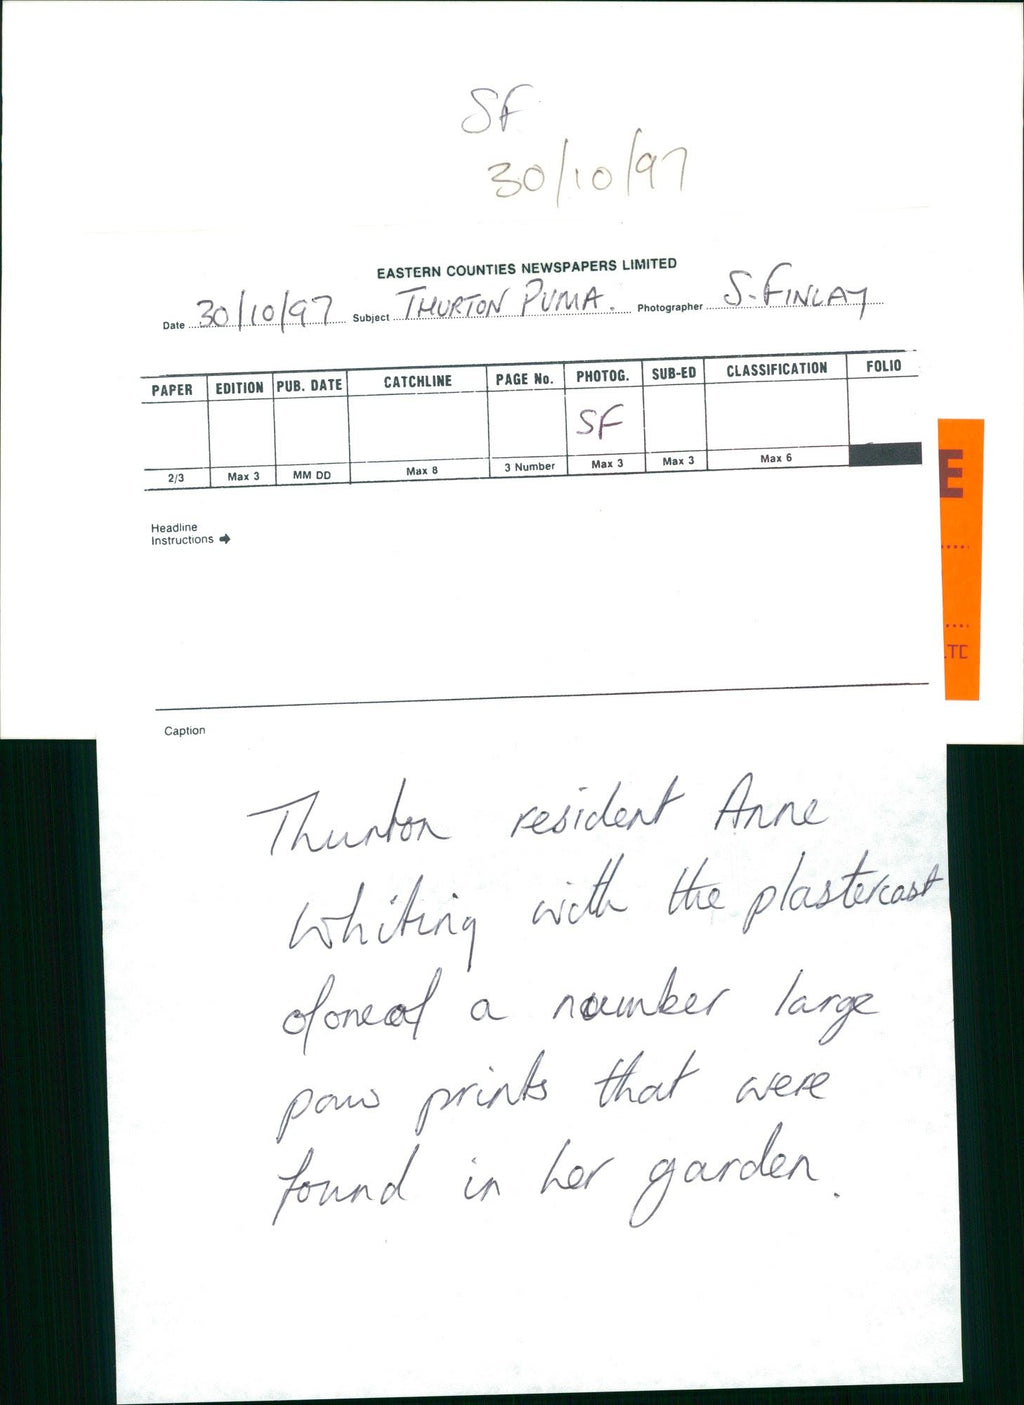 SF
30/10/97
EASTERN COUNTIES NEWSPAPERS LIMITED
Date 30/10/97 Subject THURTON PUMA. Photographer S. FINLAY
PAPER EDITION PUB. DATE CATCHLINE PAGE No. PHOTOG. SUB-ED CLASSIFICATION FOLIO
SF
2/3 Max 3 MM DD Max 8 3 Number Max 3 Max 3 Max 6
E
Headline
Instructions →
LTD
Caption
Thurton resident Anne
Whiting with the plastercast
of one of a number large
paw prints that were
found in her garden.